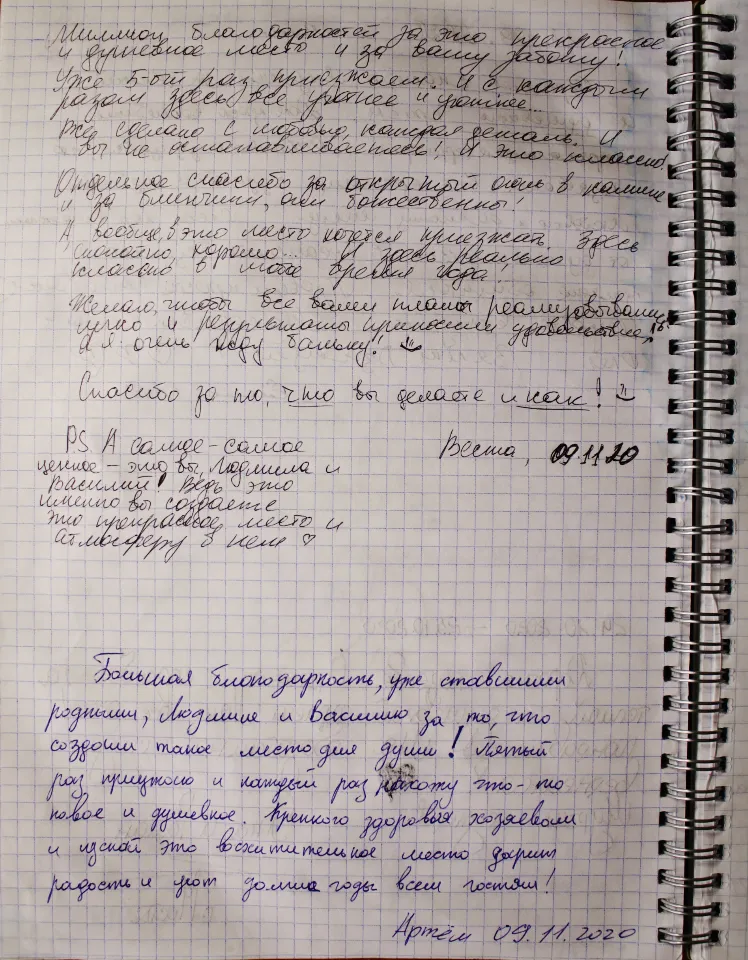 Миллион благодарностей за это прекрасное
и душевное место и за вашу заботу!
Уже 5-ый раз приезжаем. И с каждым
разом здесь все уютнее и уютнее...
Все сделано с любовью, каждая деталь. И
вы не останавливаетесь! И это классно!
Отдельное спасибо за открытый огонь в камине
и за блинчики, они божественны!
А вообще, в это место хочется приезжать. Здесь
спокойно, хорошо... И здесь реально
классно в любое время года!
Желаю, чтобы все ваши планы реализовывались
и результаты приносили удовольствие!
А я очень жду баньку!
Спасибо за то, что вы делаете и как!
P.S. А самое-самое
ценное – это вы, Людмила и
Василий! Ведь это
именно вы создаете
это прекрасное место и
атмосферу в нем ♡
Веста, 09.11.20
Большая благодарность, уже ставшими
родными, Людмиле и Василию за то, что
создали такое место для души! Пятый
раз приезжаю и каждый раз нахожу что-то
новое и душевное. Крепкого здоровья хозяевам
и пускай это восхитительное место дарит
радость и уют долгие годы всем гостям!
Артём 09.11.2020